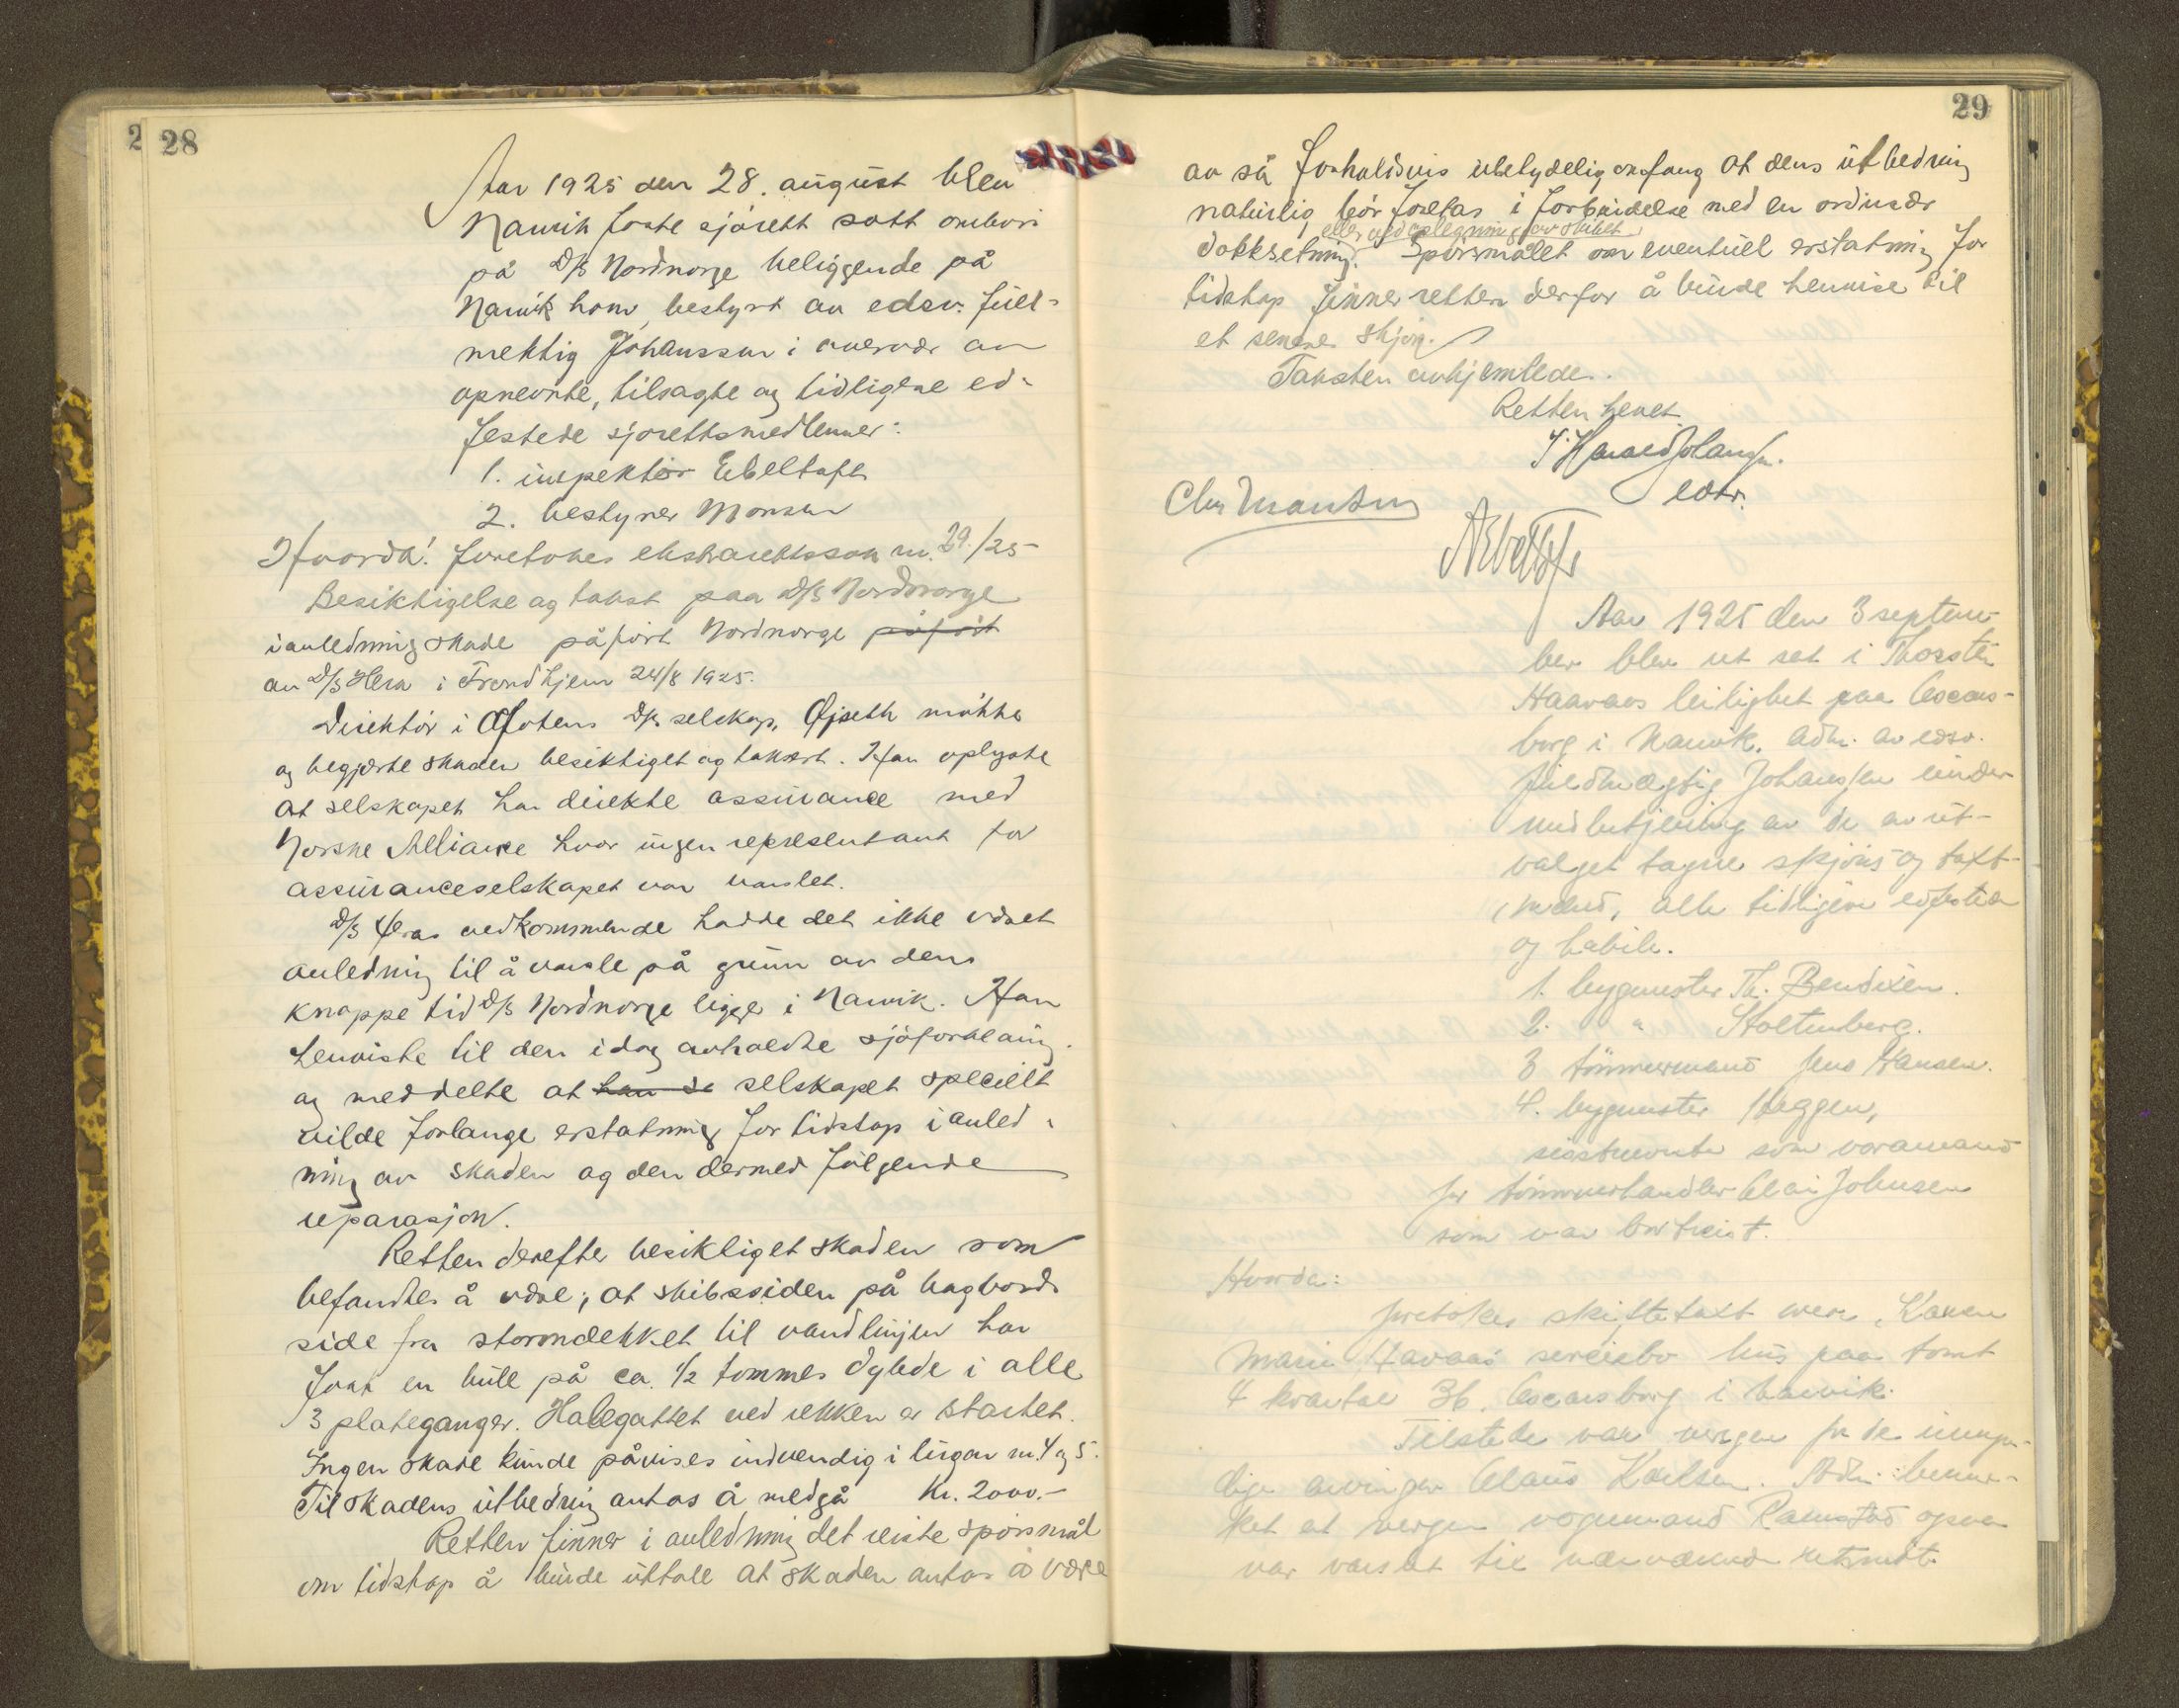 28
Aar 1925 den 28. august blev
Narvik faste sjörett satt ombord
på D/S Nordnorge beliggende på
Narvik havn, bestyrt av edsv. full-
mektig Johanssen i overvær av
opnevnte, tilsagte og tidligere ed-
festede sjorettsmedlemmer:
1. inspektör Ebeltoft
2. bestyrer Monsen
Hvorda! foretokes ekstrarettssak nr. 39/25
Besiktigelse og takst paa D/S Nordnorge
i anledning skade påfört Nordnorge påfört
av D/S Hera i Trondhjem 24/8 1925.
Direktör i Ofotens D/S selskap, Qjseth mötte
og begjærte skaden besiktiget og taksert. Han oplyste
at selskapet har direkte assurance med
Norske Alliance hvor ingen representant for
assuranceselskapet var varslet.
D/S Heras vedkommende hadde det ikke været
anledning til å varsle på grunn av den
knappe tid D/S Nordnorge ligger i Narvik. Han
henviste til den idag avholdte sjöforklaring
og meddelte at han de selskapet specielt
vilde forlange erstatning for tidstap i anled-
ning av skaden og den dermed fölgende
reparasjon.
Retten derefter besiktiget skaden som
befandtes å være; at skibssiden på bagbords
side fra stormdekket til vandlinjen har
faat en bule på ca. 1/2 tommes dybde i alle
3 plateganger. Halegattet ved rekken er startet.
Ingen skade kunde påvises indvendig i lugar nr. 4 og 5.
Til skadens utbedring antas å medgå Kr. 2000.-
Retten finner i anledning det reiste spörsmål
om tidstap å burde uttale at skaden antas å være
29
av så forholdsvis ubetydelig omfang at dens utbedring
naturlig bör foretas i forbindelse med en ordinær
eller ved oplegning av skibet
dokksetning. Spörsmålet om eventuel erstatning for
tidstap finner retten derfor å burde henvise til
et senere skjön.
Taksten avhjemledes.
Retten hevet
edsv.
Chr Monsen
Aar 1925 den 3 septem-
ber blev ret sat i Thorstein
Haavaos leilighet paa Oscars-
borg i Narvik. Adm. av edsv.
fuldmægtig Johanssen under
medbetjening av de av ut-
valget tagne skjöns og taxt-
mænd, alle tidligere edfestede
og habile.
1. bygmester Th. Bendixen.
2. " Stoltenberg.
3 tömmermand Jens Hansen.
4. bygmester Heggen,
sisstnevnte som varamand
for tömmerhandler Claus Johnsen
som var bortreist.
Hvorda:
foretokes skiftetakt over Karen
Marie Havaas særeiebo hus paa tomt
4 kvartal 36, Oscarsborg i Narvik.
Tilstede var vergen for de umyn-
dige arvinger Claus Karlsen. Adm. bemer-
ket at vergen vognmand Ramstad ogsaa
var varslet til nærværende retsmöte